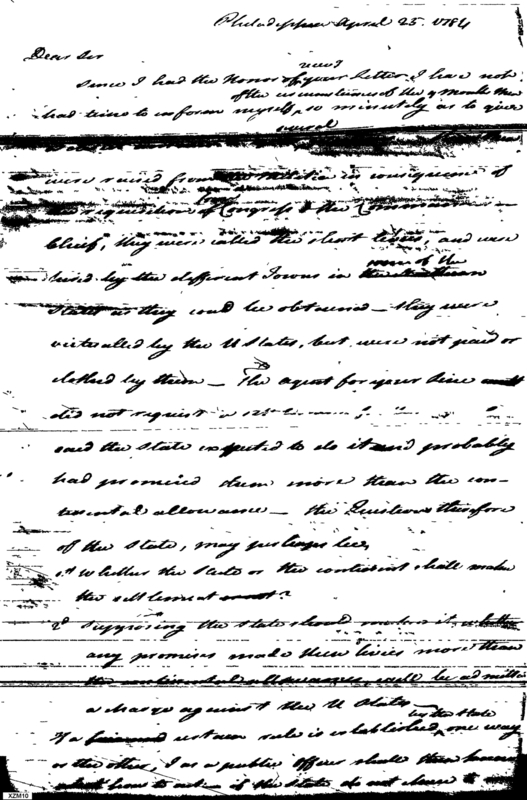 Philadelphia April 25. 1784
Dear Sir
Since I had the Honor of your letter I have not
of the circumstances of the 9 months men
had time to inform myself, so minutely as to give
several
were raised from in consequence of
the requisition of Congress & the Commander in
Chief, they were called the short levies, and were
hired by the different Towns in some of the
States as they could be obtained — they were
victualled by the U States, but were not paid or
clothed by them — The agent for your line
did not request a
said the State expected to do it and probably
had promised them more than the con-
tinental allowance — the Questions therefore
of the State, may perhaps be,
1st whether the State or the continent shall make
the settlement?
2d supposing the State should make it,
any promises made these levies more than
the continental allowances, will be admitted
a charge against the U States
by the State
If a certain rule is established, one way
or the other, I as a public officer shall then know
how to act — if the State do not choose to
XZM10